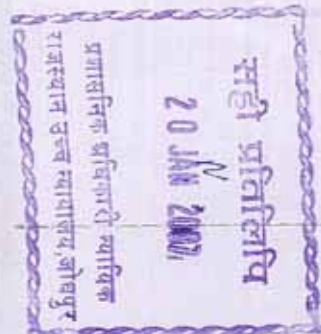 सही प्रतिलिपि
20 JAN
प्रशासनिक अधिकारी न्यायिक
राजस्थान उच्च न्यायालय,जोधपुर